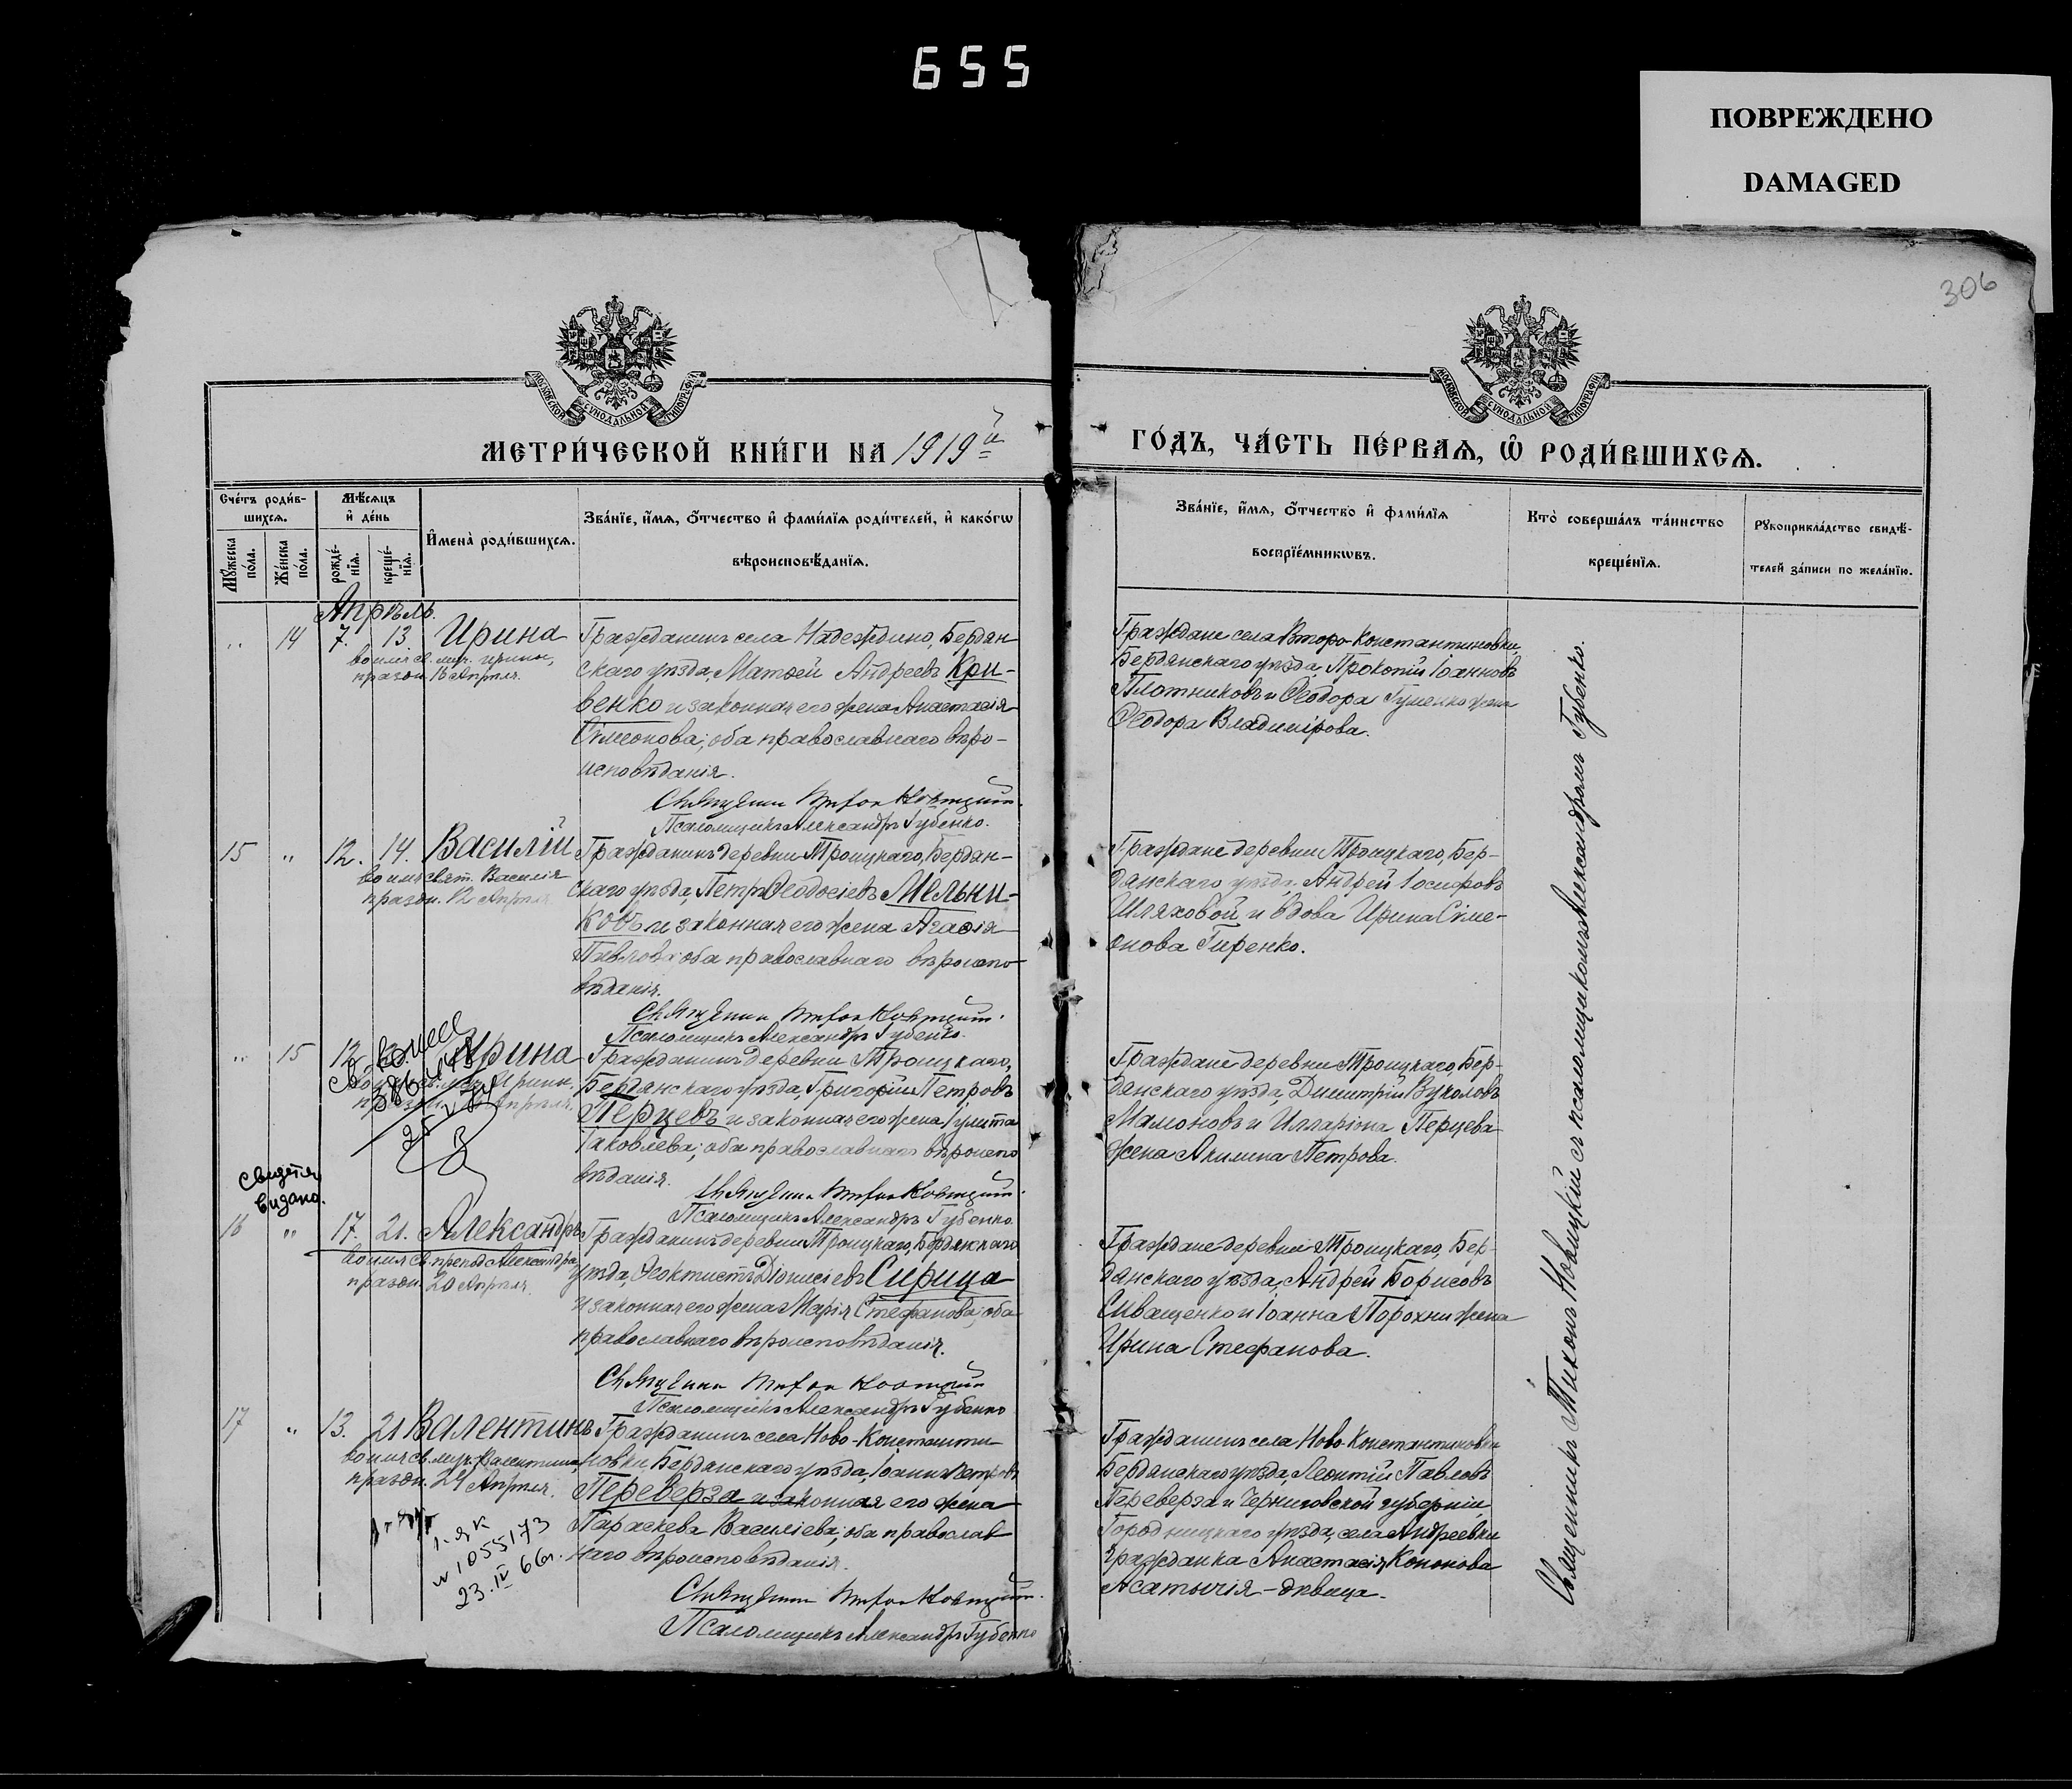 655
ПОВРЕЖДЕНО
DAMAGED
306
МОСКОВСКОЙ СУНОДАЛЬНОЙ ТИПОГРАФІИ
МОСКОВСКОЙ СУНОДАЛЬНОЙ ТИПОГРАФІИ
МЕТРИ́ЧЕСКОЙ КНИ́ГИ НА 1919й
ГО́ДЪ, ЧА́СТЬ ПЕ́РВАѦ, Ѡ҆ РОДИ́ВШИХСѦ.
Сче́тъ роди́в-
шихсѧ.
Мѣ́сѧцъ
и҆ де́нь
Мꙋ́жеска
по́ла.
Же́нска
по́ла.
рожде́-
нїѧ.
креще́-
нїѧ.
И҆мена̀ роди́вшихсѧ.
Зва́нїе, и҆́мѧ, ѻ҆́тчество и҆ фами́лїѧ роди́телей, и҆ како́гѡ
вѣроисповѣ́данїѧ.
Зва́нїе, и҆́мѧ, ѻ҆́тчество и҆ фами́лїѧ
воспрїе́мникѡвъ.
Кто̀ соверша́лъ та́инство
креще́нїѧ.
Рꙋкоприкла́дство свидѣ́-
телей за́писи по жела́нїю.
Апрѣль.
„ 14 7. 13. Ирина
во имя св. муч. Ирины,
праздн. 16 Апрѣля.
Гражданинъ села Надеждино, Бердян-
скаго уѣзда, Матѳей Андреевъ Кри-
венко и законная его жена Анастасія
Симеонова; оба православнаго вѣро-
исповѣданія.
Священникъ Тихон Новицкий.
Псаломщикъ Александръ Губенко.
Граждане села Второ-Константиновки,
Бердянскаго уѣзда, Прокопій Іоанновъ
Плотниковъ и Ѳеодора Гуменко жена
Ѳеодора Владимірова.
15 „ 12. 14. Василій
во имя свят. Василія
праздн. 12 Апрѣля
Гражданинъ деревни Троицкаго, Бердян-
скаго уѣзда, Петръ Ѳеодосіевъ Мельни-
ковъ и законная его жена Агаѳія
Павлова; оба православнаго вѣроиспо-
вѣданія.
Священник Тихон Новицкий.
Псаломщикъ Александръ Губенко.
Граждане деревни Троицкаго, Бер-
дянскаго уѣзда, Андрей Іосифовъ
Шляховой и вдова Ирина Симе-
онова Гиренко.
„ 15 12. Ирина
во имя св. муч. Ирины,
праздн. Апрѣля.
Гражданинъ деревни Троицкаго,
Бердянскаго уѣзда, Григорій Петровъ
Перцевъ и законная его жена Іулитта
Іаковлева; оба православнаго вѣроиспо
вѣданія.
Священник Тихон Новицкий.
Псаломщикъ Александръ Губенко.
Граждане деревни Троицкаго, Бер-
дянскаго уѣзда, Димитрій Вуколовъ
Мамоновъ и Илларіона Перцева
жена Акилина Петрова.
выдано.
16 „ 17. 21. Александръ
во имя св. препод Александра,
праздн. 20 Апрѣля.
Гражданинъ деревни Троицкаго, Бердянскаго
уѣзда, Ѳеоктистъ Діонисіевъ Сирица
и законная его жена Марія Стефанова; оба
православнаго вѣроисповѣданія.
Священник Тихон Новицкий
Псаломщикъ Александръ Губенко
Граждане деревни Троицкаго, Бер-
дянскаго уѣзда, Андрей Борисовъ
Сиващенко и Іоанна Порохни жена
Ирина Стефанова.
17 „ 13. 21 Валентинъ
во имя св. муч. Валентина,
праздн. 24 Апрѣля.
Гражданинъ села Ново-Константи-
новки, Бердянскаго уѣзда, Іоаннъ Петровъ
Переверза и законная его жена
Параскева Василіева; оба православ
наго вѣроисповѣданія.
Священник Тихон Новицкий.
Псаломщикъ Александръ Губенко
1-ЯК
N 1055173
23.IV 66г.
Гражданинъ села Ново-Константиновки
Бердянскаго уѣзда, Леонтій Павловъ
Переверза и Черниговской губерніи,
Городницкаго уѣзда, села Андреевки
гражданка Анастасія Кононова
Асатычія - дѣвица.
Священникъ Тихонъ Новицкій съ псаломщикомъ Александромъ Губенко.